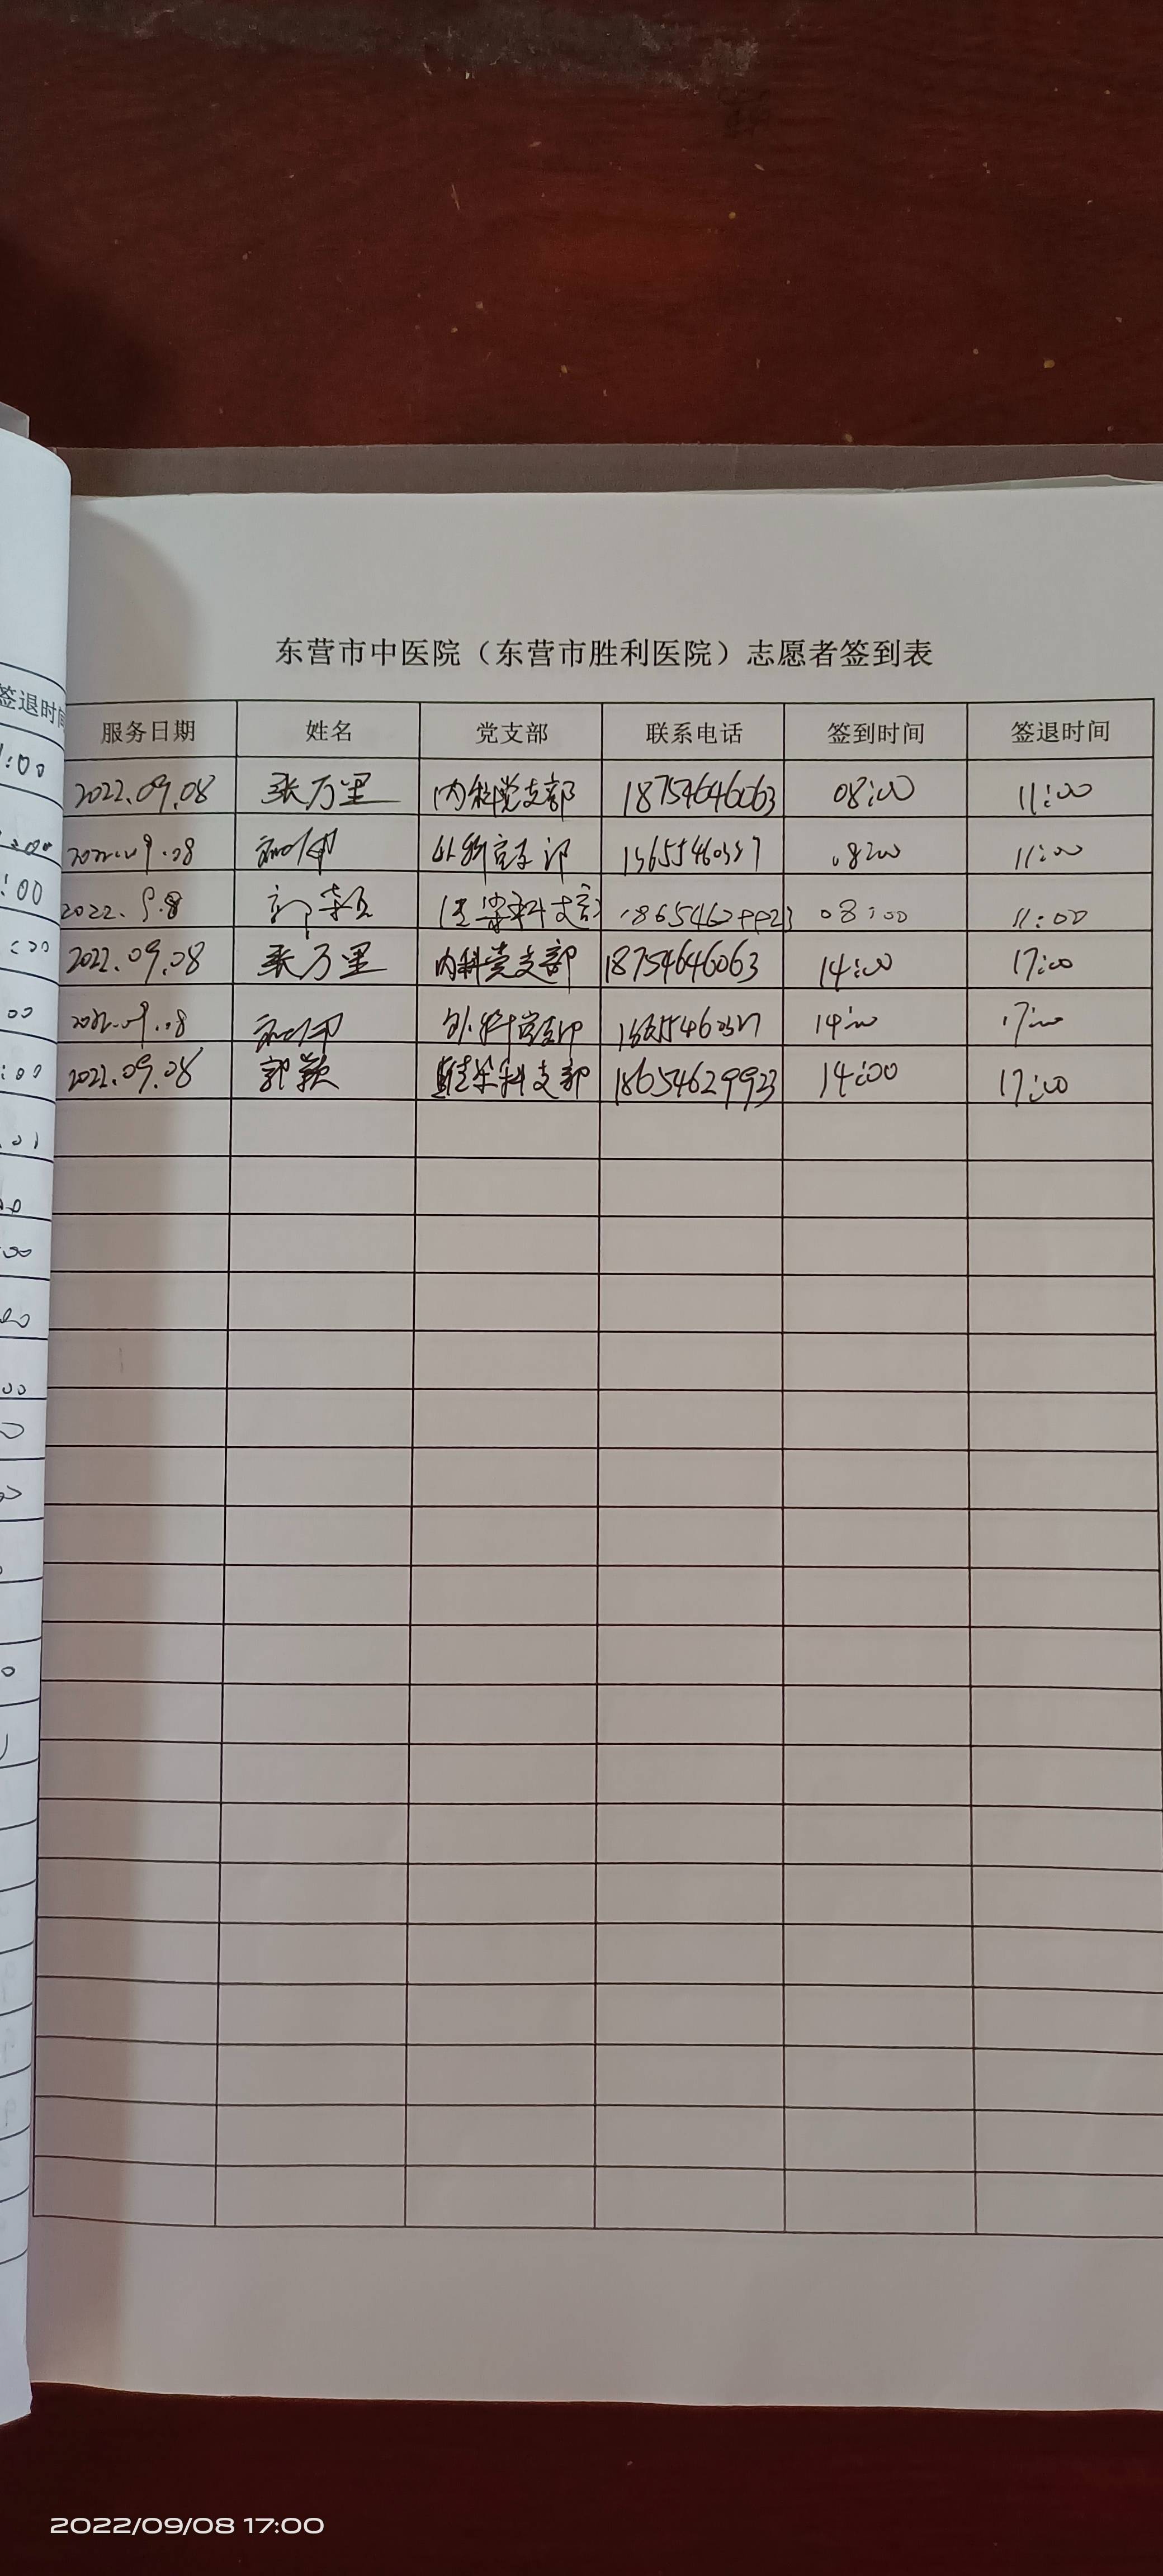 东营市中医院（东营市胜利医院）志愿者签到表
签退时间
服务日期 姓名 党支部 联系电话 签到时间 签退时间
2022.09.08 张万里 内科党支部 18754646063 08:00 11:00
2022.09.08 08:00 11:00
2022.9.8 郭颖 18654629923 08:00 11:00
2022.09.08 张万里 内科党支部 18754646063 14:00 17:00
2022.09.08 外科党支部 14:00 17:00
2022.09.08 郭颖 科支部 18654629923 14:00 17:00
2022/09/08 17:00